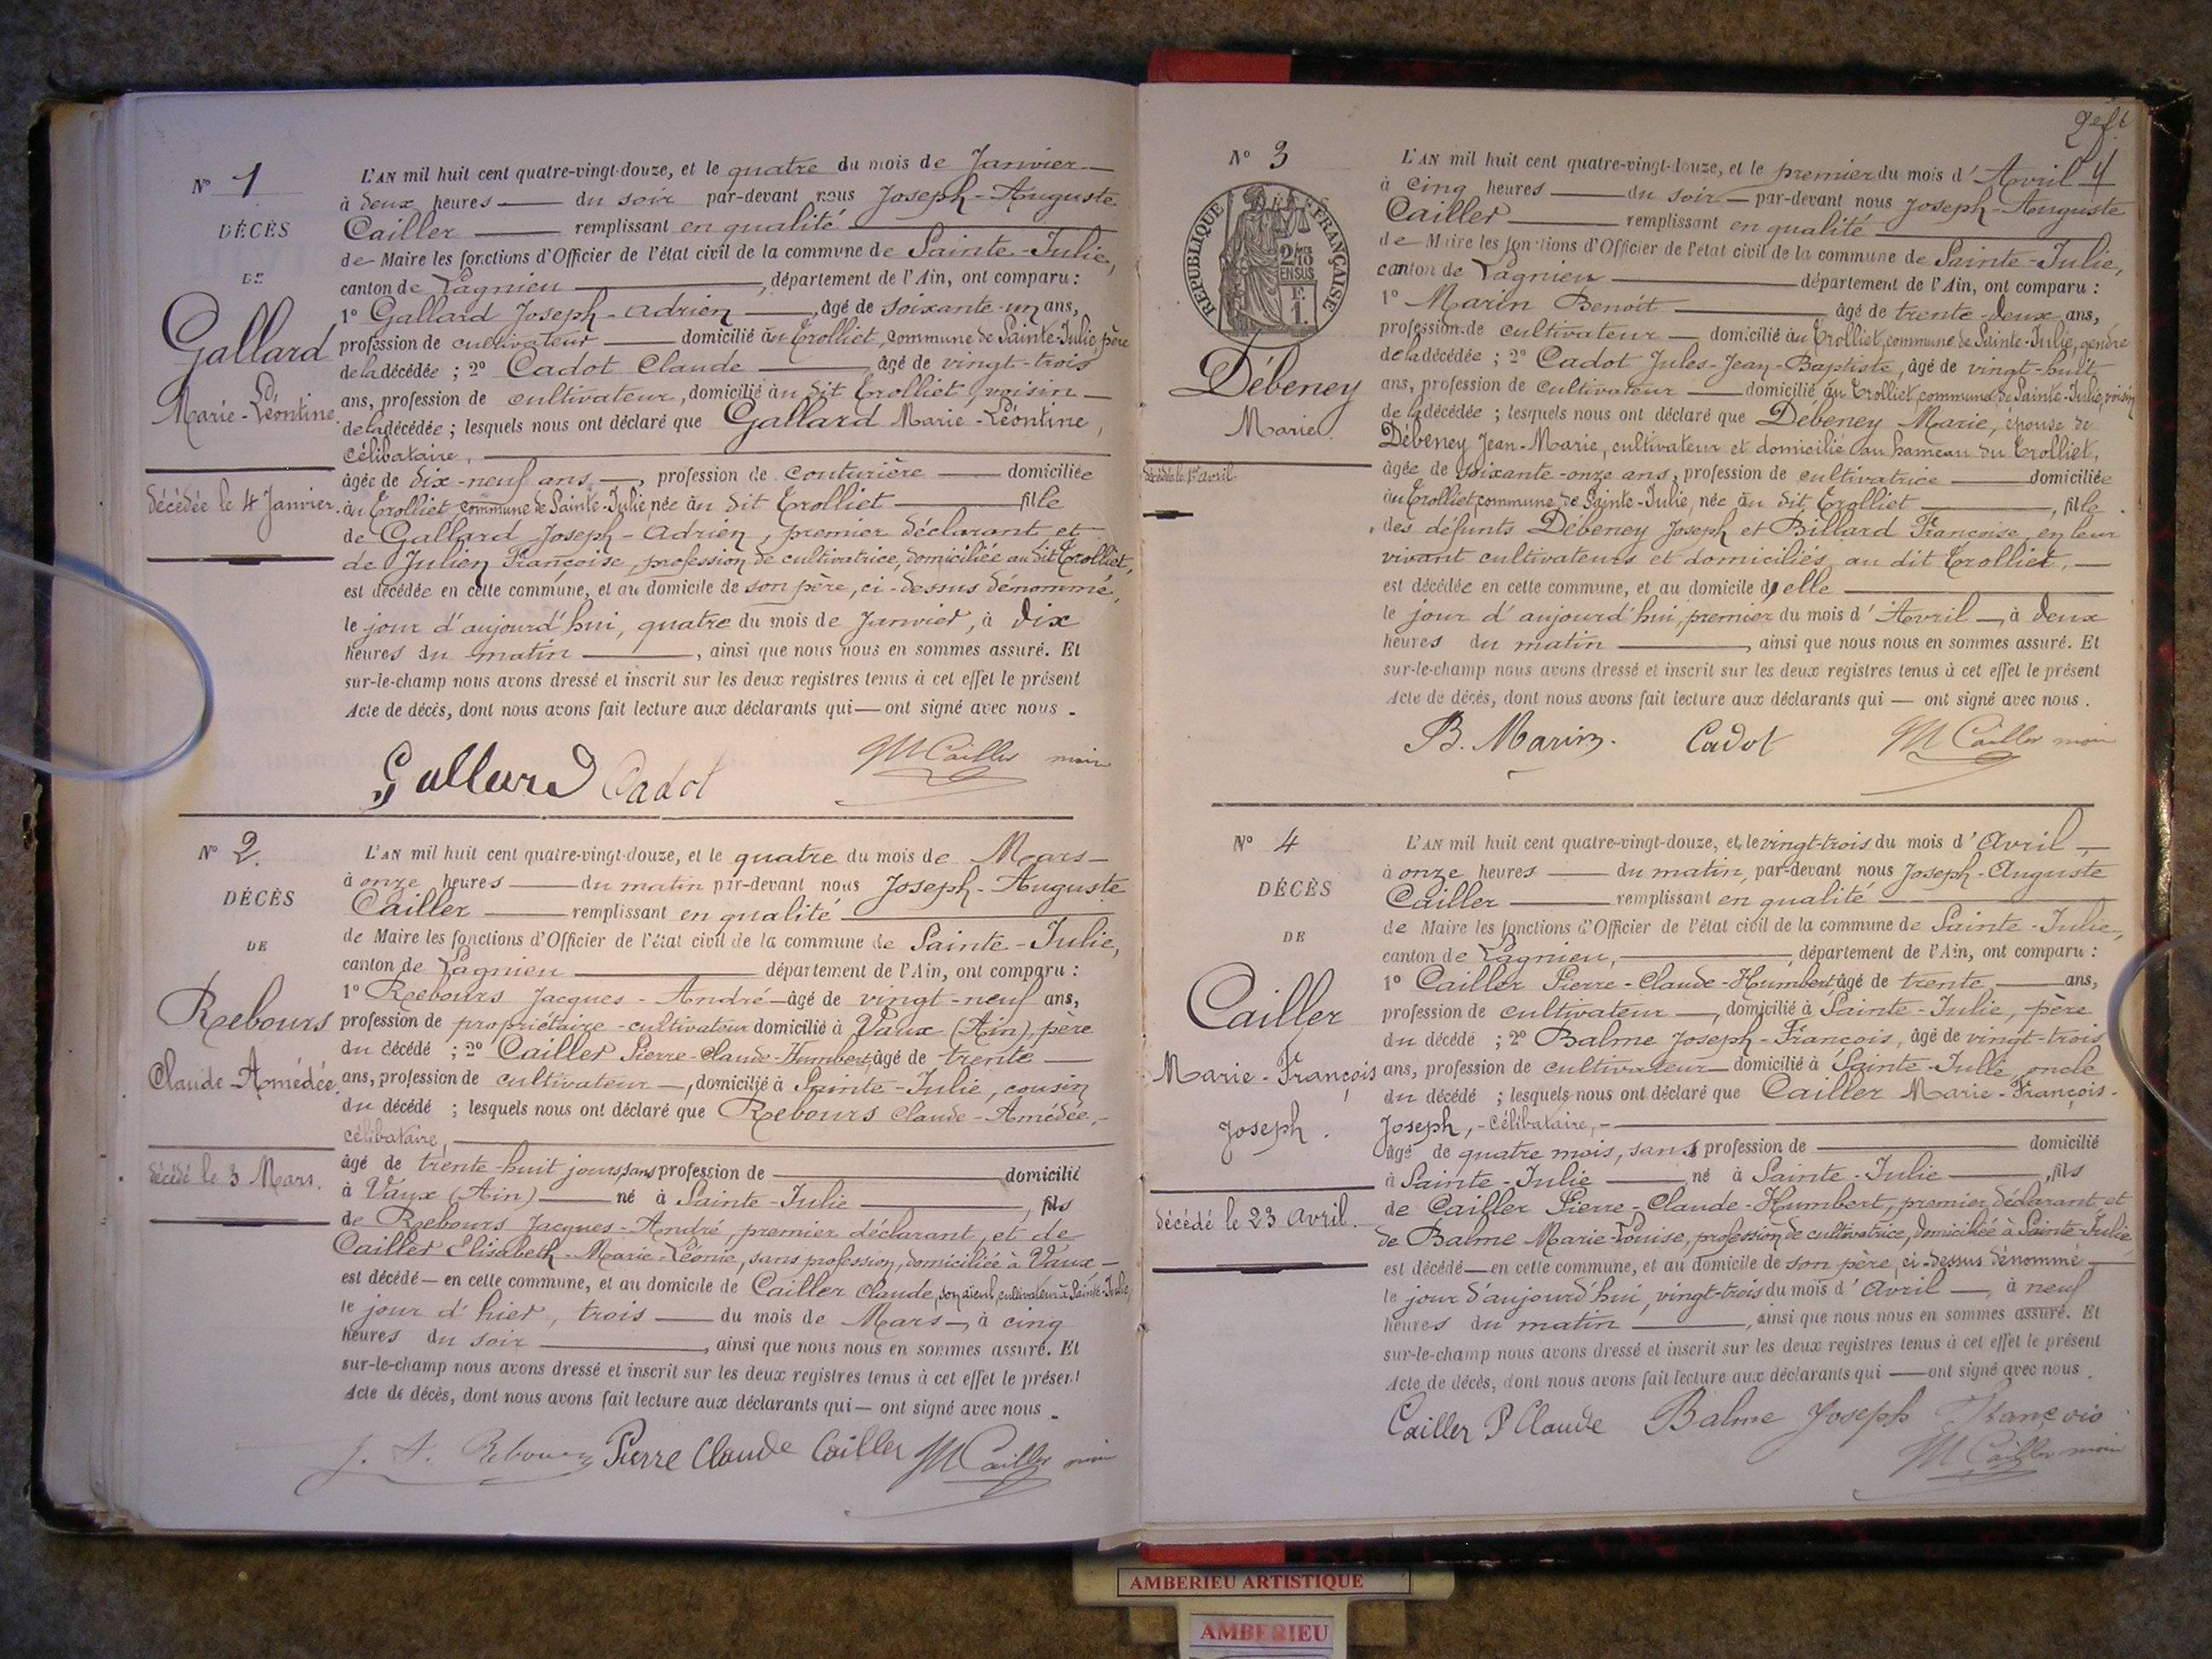 N° 1
DÉCÈS
DE
Gallard
Marie-Léontine.
décédée le 4 Janvier.
L'AN mil huit cent quatre-vingt-douze, et le quatre du mois de Janvier
à deux heures du soir par-devant nous Joseph-Auguste
Cailler remplissant en qualité
de Maire les fonctions d'Officier de l'état civil de la commune de Sainte-Julie,
canton de Lagnieu, département de l'Ain, ont comparu :
1° Gallard Joseph-Adrien, âgé de soixante-un ans,
profession de cultivateur domicilié au Trolliet, commune de Sainte-Julie, père
de la décédée ; 2° Cadot Claude âgé de vingt-trois
ans, profession de cultivateur, domicilié au dit Trolliet, voisin
de la décédée ; lesquels nous ont déclaré que Gallard Marie-Léontine,
célibataire,
âgée de dix-neuf ans, profession de couturière domiciliée
au Trolliet commune de Sainte-Julie, née au dit Trolliet fille
de Gallard Joseph-Adrien, premier déclarant et
de Julien Françoise, profession de cultivatrice, domiciliée au dit Trolliet,
est décédée en cette commune, et au domicile de son père, ci-dessus dénommé,
le jour d'aujourd'hui, quatre du mois de Janvier, à dix
heures du matin, ainsi que nous nous en sommes assuré. Et
sur-le-champ nous avons dressé et inscrit sur les deux registres tenus à cet effet le présent
Acte de décès, dont nous avons fait lecture aux déclarants qui ont signé avec nous.
Gallard Cadot Cailler maire
N° 2.
DÉCÈS
DE
Rebours
Claude-Amédée.
décédé le 3 Mars.
L'AN mil huit cent quatre-vingt-douze, et le quatre du mois de Mars
à onze heures du matin par-devant nous Joseph-Auguste
Cailler remplissant en qualité
de Maire les fonctions d'Officier de l'état civil de la commune de Sainte-Julie,
canton de Lagnieu département de l'Ain, ont comparu :
1° Rebours Jacques-André âgé de vingt-neuf ans,
profession de propriétaire-cultivateur domicilié à Vaux (Ain), père
du décédé ; 2° Cailler Pierre-Claude-Humbert, âgé de trente
ans, profession de cultivateur, domicilié à Sainte-Julie, cousin
du décédé ; lesquels nous ont déclaré que Rebours Claude-Amédée,
célibataire,
âgé de trente-huit jours, sans profession de domicilié
à Vaux (Ain) né à Sainte-Julie, fils
de Rebours Jacques-André, premier déclarant, et de
Cailler Elisabeth-Marie-Léonie, sans profession, domiciliée à Vaux
est décédé en cette commune, et au domicile de Cailler Claude, son aïeul, cultivateur à Sainte-Julie,
le jour d'hier, trois du mois de Mars, à cinq
heures du soir, ainsi que nous nous en sommes assuré. Et
sur-le-champ nous avons dressé et inscrit sur les deux registres tenus à cet effet le présent
Acte de décès, dont nous avons fait lecture aux déclarants qui ont signé avec nous.
J. A. Rebours Pierre Claude Cailler Cailler maire
4
N° 3
RÉPUBLIQUE FRANÇAISE
Débeney
Marie.
décédée le 1er avril
L'AN mil huit cent quatre-vingt-douze, et le premier du mois d'Avril
à cinq heures du soir par-devant nous Joseph-Auguste
Cailler remplissant en qualité
de Maire les fonctions d'Officier de l'état civil de la commune de Sainte-Julie,
canton de Lagnieu département de l'Ain, ont comparu :
1° Marin Benoît âgé de trente-deux ans,
profession de cultivateur domicilié au Trolliet, commune de Sainte-Julie, gendre
de la décédée ; 2° Cadot Jules-Jean-Baptiste, âgé de vingt-huit
ans, profession de cultivateur domicilié au Trolliet, commune de Sainte-Julie, voisin
de la décédée ; lesquels nous ont déclaré que Débeney Marie, épouse de
Débeney Jean-Marie, cultivateur et domicilié au hameau du Trolliet,
âgée de soixante-onze ans, profession de cultivatrice domiciliée
au Trolliet commune de Sainte-Julie, née au dit Trolliet, fille
des défunts Débeney Joseph et Billard Françoise, en leur
vivant cultivateurs et domiciliés au dit Trolliet,
est décédée en cette commune, et au domicile d'elle
le jour d'aujourd'hui, premier du mois d'Avril, à deux
heures du matin, ainsi que nous nous en sommes assuré. Et
sur-le-champ nous avons dressé et inscrit sur les deux registres tenus à cet effet le présent
Acte de décès, dont nous avons fait lecture aux déclarants qui ont signé avec nous.
B. Marin. Cadot Cailler maire
N° 4
DÉCÈS
DE
Cailler
Marie-François
Joseph.
décédé le 23 avril.
L'AN mil huit cent quatre-vingt-douze, et le vingt-trois du mois d'Avril,
à onze heures du matin, par-devant nous Joseph-Auguste
Cailler remplissant en qualité
de Maire les fonctions d'Officier de l'état civil de la commune de Sainte-Julie,
canton de Lagnieu, département de l'Ain, ont comparu :
1° Cailler Pierre-Claude-Humbert, âgé de trente ans,
profession de cultivateur, domicilié à Sainte-Julie, père
du décédé ; 2° Balme Joseph-François, âgé de vingt-trois
ans, profession de cultivateur domicilié à Sainte-Julie, oncle
du décédé ; lesquels nous ont déclaré que Cailler Marie-François-
Joseph, -célibataire,-
âgé de quatre mois, sans profession de domicilié
à Sainte-Julie né à Sainte-Julie, fils
de Cailler Pierre-Claude-Humbert, premier déclarant et
de Balme Marie-Louise, profession de cultivatrice, domiciliée à Sainte-Julie
est décédé en cette commune, et au domicile de son père, ci-dessus dénommé
le jour d'aujourd'hui, vingt-trois du mois d'Avril, à neuf
heures du matin, ainsi que nous nous en sommes assuré. Et
sur-le-champ nous avons dressé et inscrit sur les deux registres tenus à cet effet le présent
Acte de décès, dont nous avons fait lecture aux déclarants qui ont signé avec nous.
Cailler P Claude Balme Joseph François
Cailler maire
AMBERIEU ARTISTIQUE
AMBERIEU